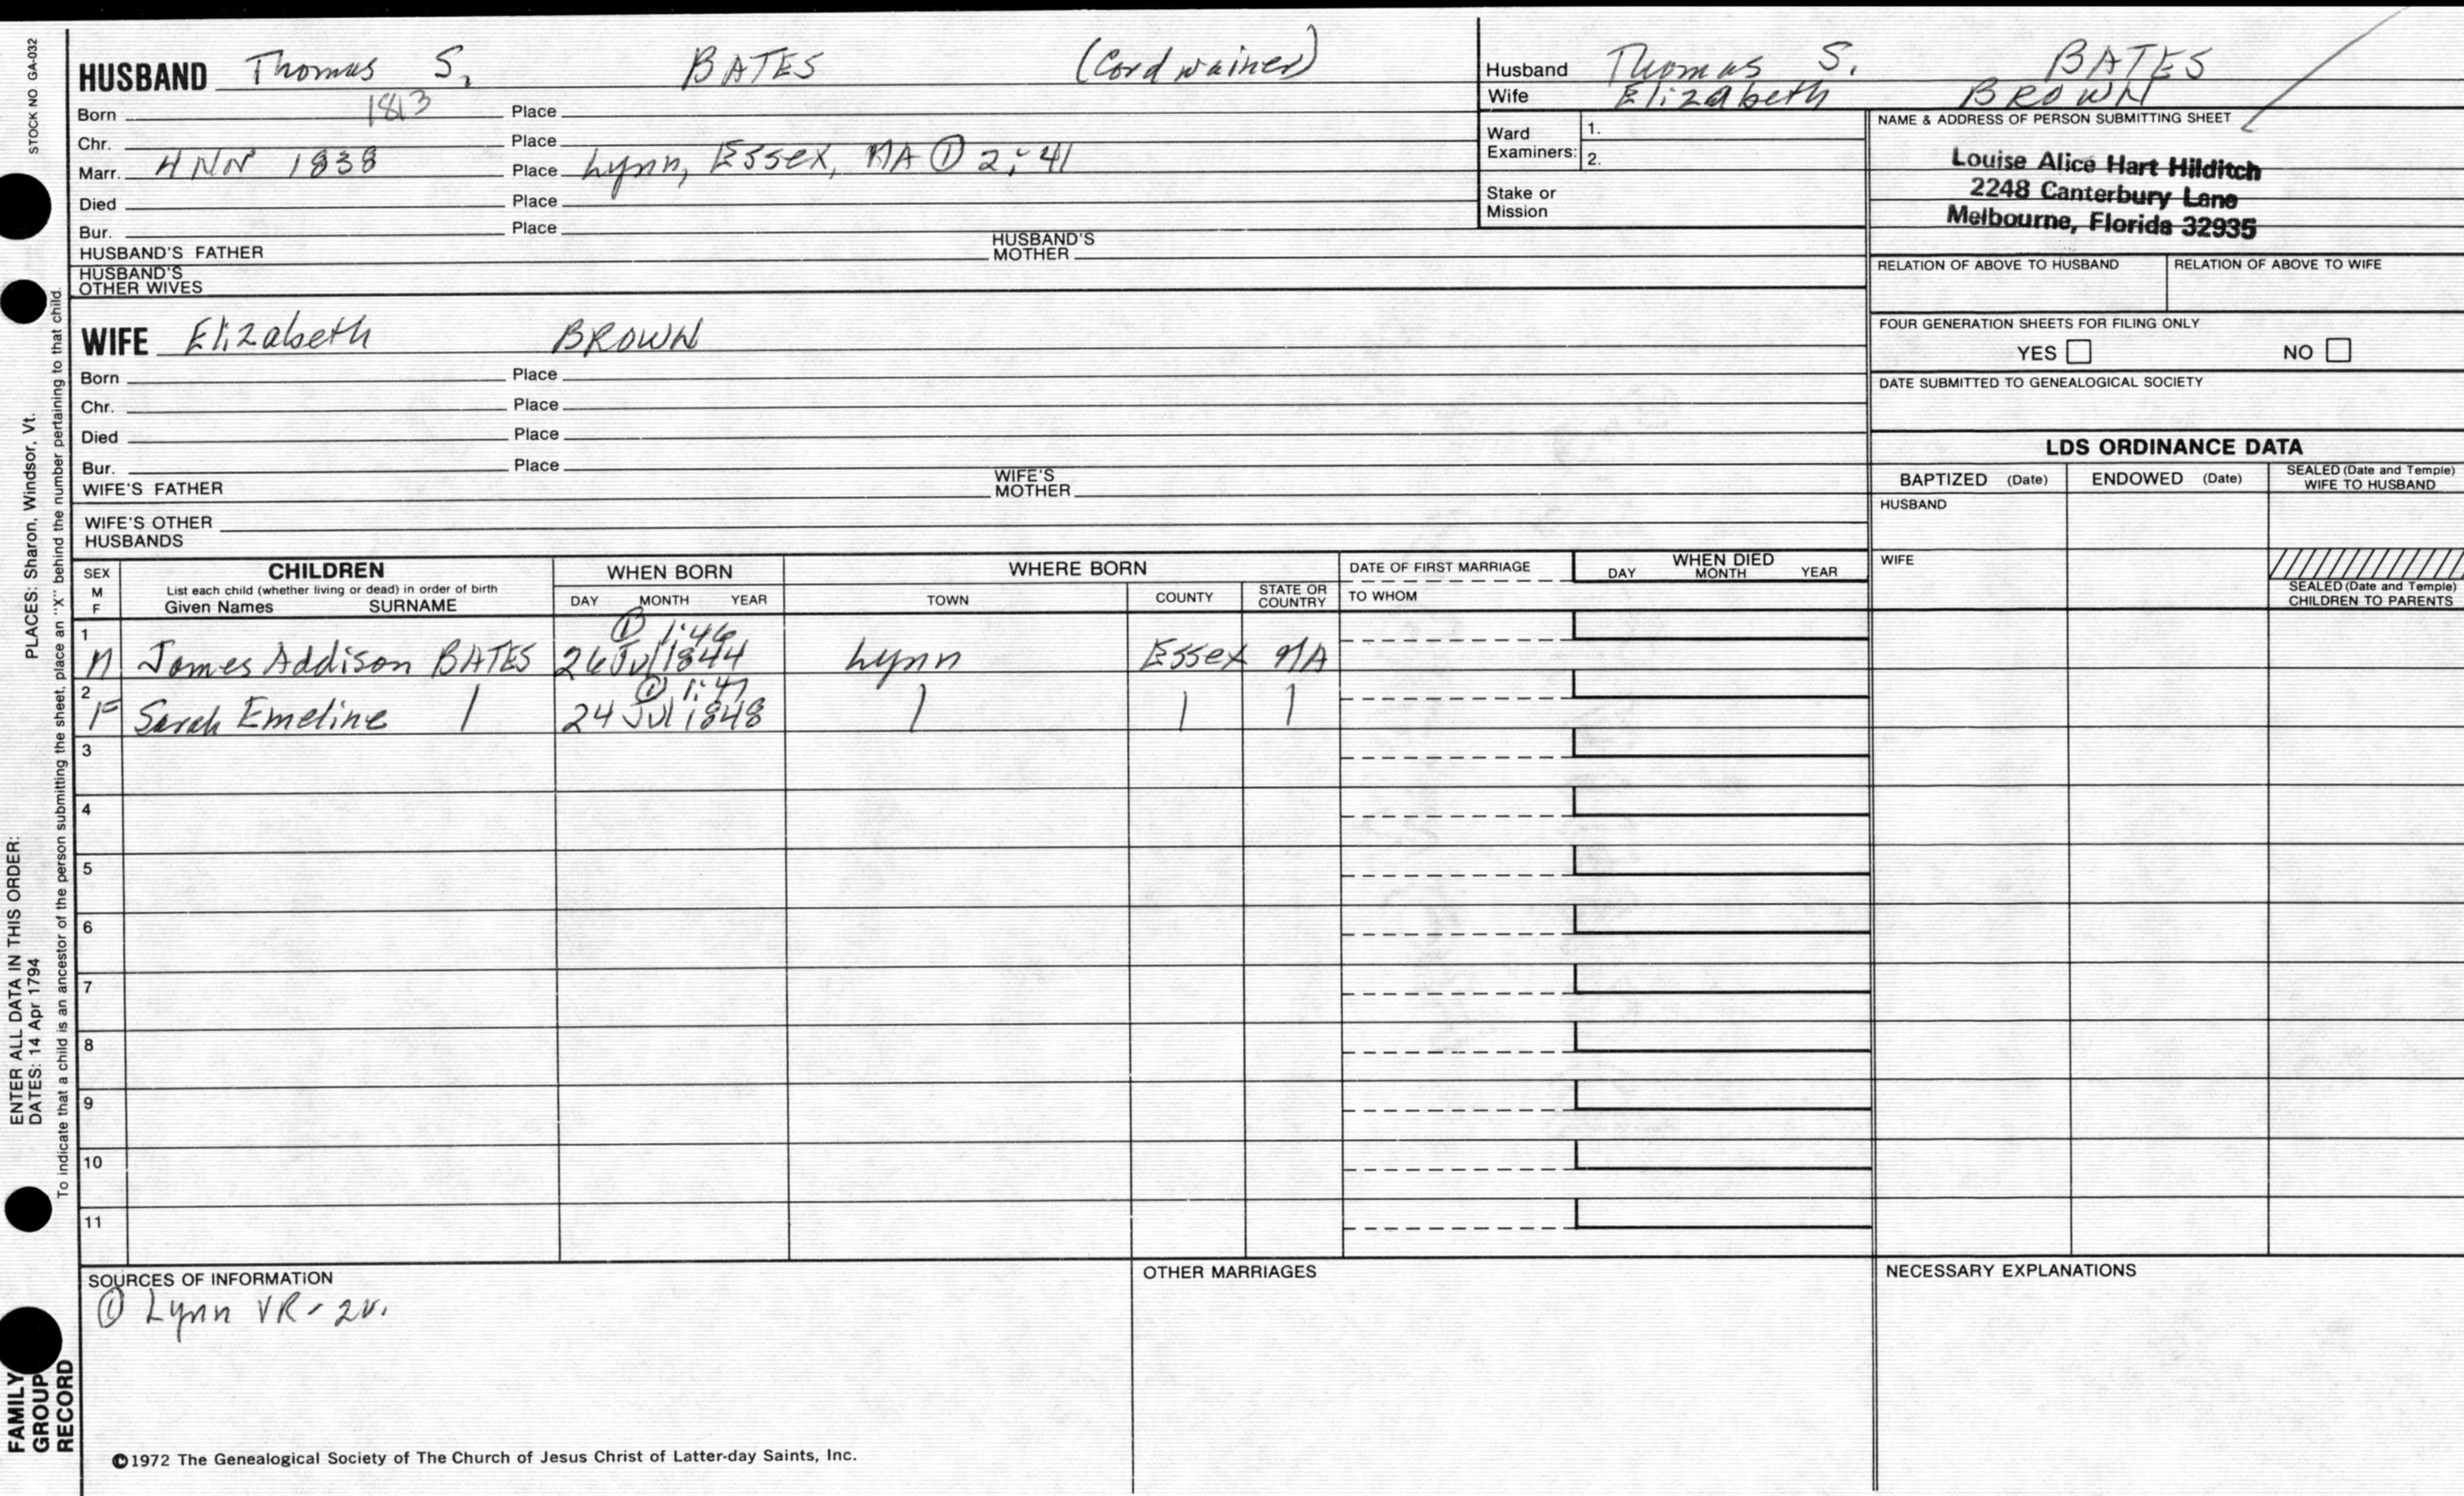 STOCK NO GA-032
PLACES: Sharon, Windsor, Vt.
ENTER ALL DATA IN THIS ORDER:
DATES: 14 Apr 1794
To indicate that a child is an ancestor of the person submitting the sheet, place an "X" behind the number pertaining to that child.
FAMILY
GROUP
RECORD
HUSBAND Thomas S. BATES (Cordwainer)
Born 1813 Place
Chr. Place
Marr. 4 Nov 1838 Place Lynn, Essex, MA ① 2:41
Died Place
Bur. Place
HUSBAND'S FATHER HUSBAND'S MOTHER
HUSBAND'S
OTHER WIVES
WIFE Elizabeth BROWN
Born Place
Chr. Place
Died Place
Bur. Place
WIFE'S FATHER WIFE'S MOTHER
WIFE'S OTHER
HUSBANDS
Husband Thomas S. BATES
Wife Elizabeth BROWN
Ward 1.
Examiners: 2.
Stake or
Mission
NAME & ADDRESS OF PERSON SUBMITTING SHEET
Louise Alice Hart Hilditch
2248 Canterbury Lane
Melbourne, Florida 32935
RELATION OF ABOVE TO HUSBAND RELATION OF ABOVE TO WIFE
FOUR GENERATION SHEETS FOR FILING ONLY
YES NO
DATE SUBMITTED TO GENEALOGICAL SOCIETY
LDS ORDINANCE DATA
BAPTIZED (Date) ENDOWED (Date) SEALED (Date and Temple)
WIFE TO HUSBAND
HUSBAND
WIFE
SEALED (Date and Temple)
CHILDREN TO PARENTS
SEX CHILDREN WHEN BORN WHERE BORN DATE OF FIRST MARRIAGE WHEN DIED
M List each child (whether living or dead) in order of birth DAY MONTH YEAR
F Given Names SURNAME DAY MONTH YEAR TOWN COUNTY STATE OR COUNTRY TO WHOM
1 ① 1:46
M James Addison BATES 26 Jul 1844 Lynn Essex MA
2 ① 1:47
F Sarah Emeline | 24 Jul 1848 | | |
3
4
5
6
7
8
9
10
11
SOURCES OF INFORMATION OTHER MARRIAGES NECESSARY EXPLANATIONS
① Lynn VR - 2v.
©1972 The Genealogical Society of The Church of Jesus Christ of Latter-day Saints, Inc.